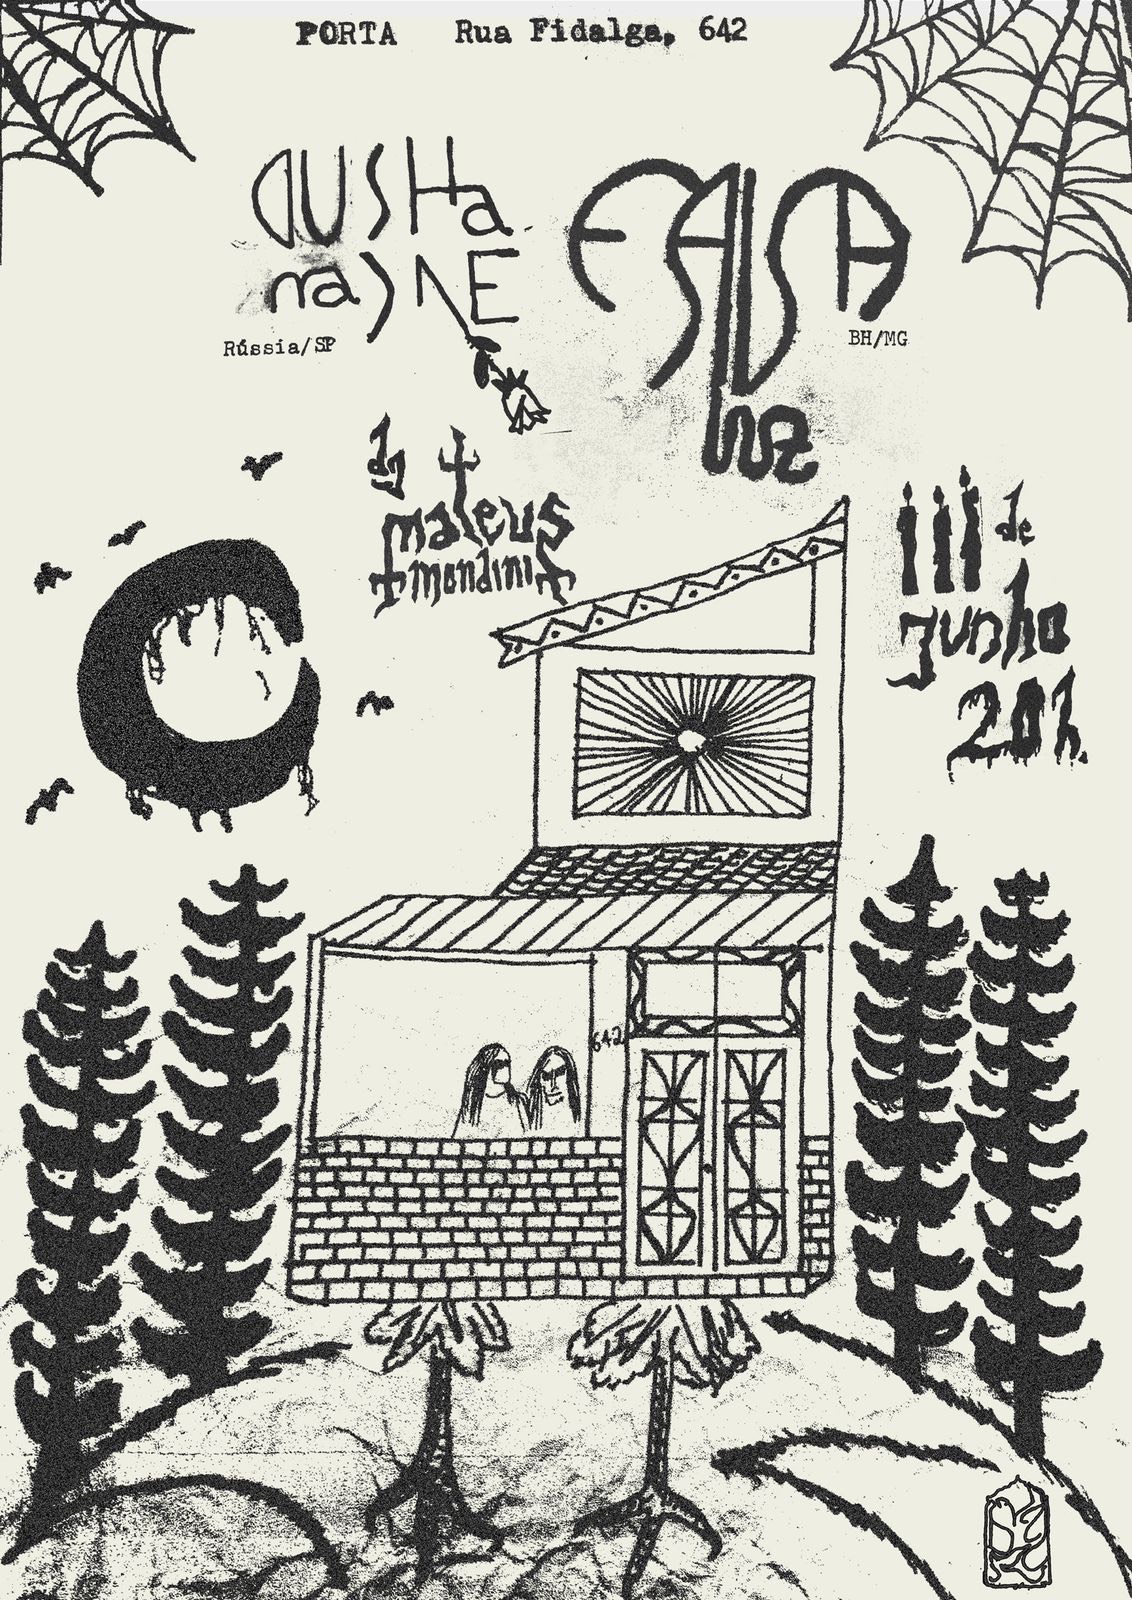 PORTA Rua Fidalga, 642
DUSHa
naSNE
Rússia/SP
FALSA
luz
BH/MG
dj
mateus
mondini
III de
Junho
20h.
642